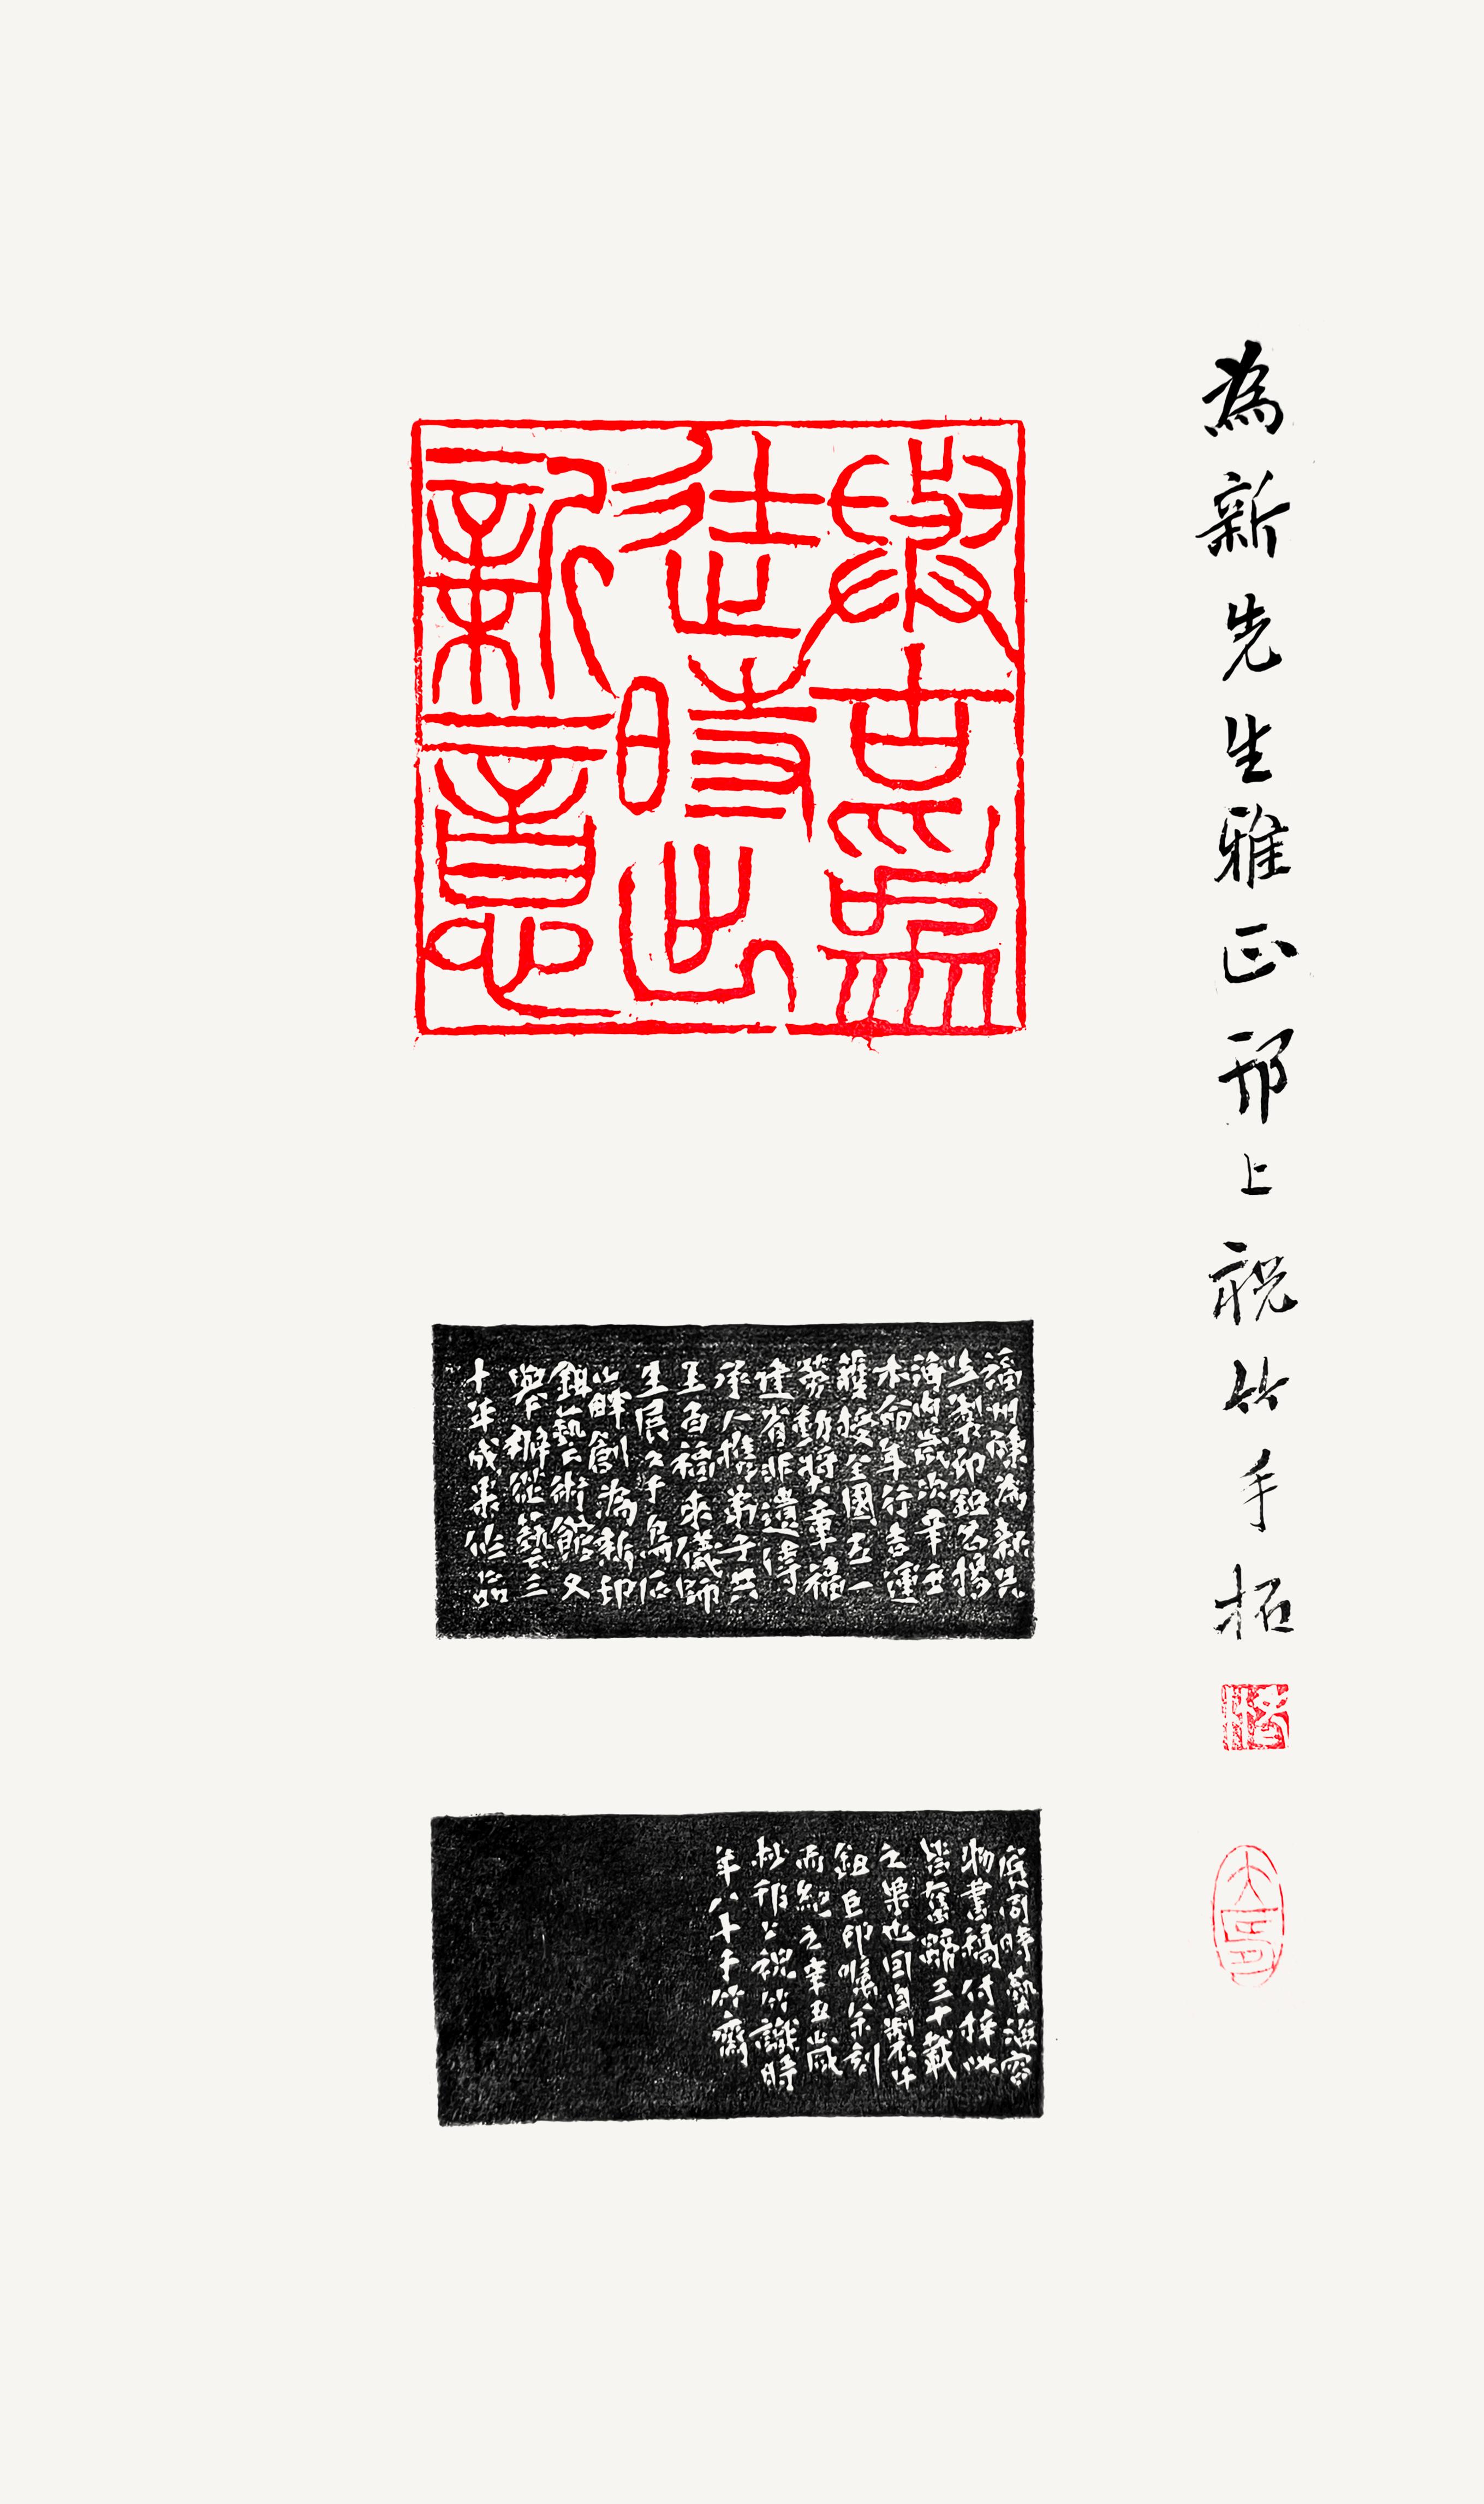 為新先生雅正邗上祝竹手拓
與古為
徒時出
新意
福州陳為新先
生製印鈕名揚
海內歲次辛丑
本命年行吉運
獲授全國五一
勞動獎章福
建省非遺傳
承人攜弟子共
呈百福來儀師
生展又于烏石
山畔創為新印
鈕藝術館又
舉辦從藝三
十年成果作品
展同時藝海容
物書稿付梓此
皆奮蹄三十載
之果也因自製牛
鈕巨印囑余刻
而紀之辛丑歲
杪邗上祝竹識時
年八十于竹齋